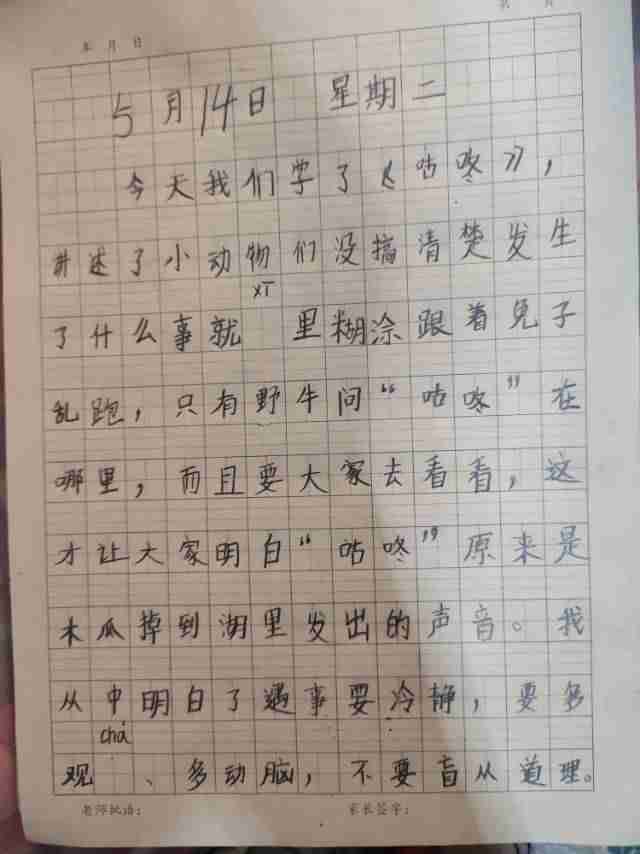 年 月 日
5月14日 星期二
今天我们学了《咕咚》,
讲述了小动物们没搞清楚发生
了什么事就 里糊涂跟着兔子
乱跑,只有野牛问“咕咚”在
哪里,而且要大家去看看,这
才让大家明白“咕咚”原来是
木瓜掉到湖里发出的声音。我
从中明白了遇事要冷静,要多
chá
观 、多动脑,不要盲从道理。
老师批语: 家长签字: